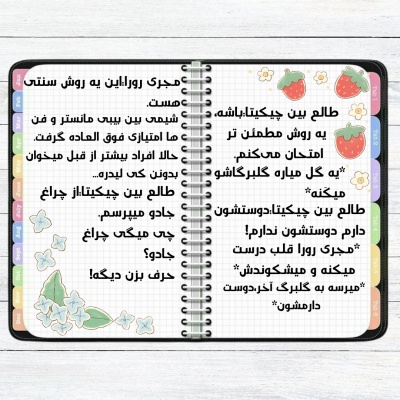 طالع بین چیکیتا:باشه،
یه روش مطمئن تر
امتحان می‌کنم.
*یه گل میاره گلبرگاشو
میکنه*
طالع بین چیکیتا:دوستشون
دارم دوستشون ندارم!
*مجری رورا قلب درست
میکنه و میشکوندش*
*میرسه به گلبرگ آخر،دوست
دارمشون*
مجری رورا:این یه روش سنتی
هست.
شیمی بین بیبی مانستر و فن
ها امتیازی فوق العاده گرفت.
حالا افراد بیشتر از قبل میخوان
بدونن کی لیدره...
طالع بین چیکیتا:از چراغ
جادو میپرسم.
چی میگی چراغ
جادو؟
حرف بزن دیگه!